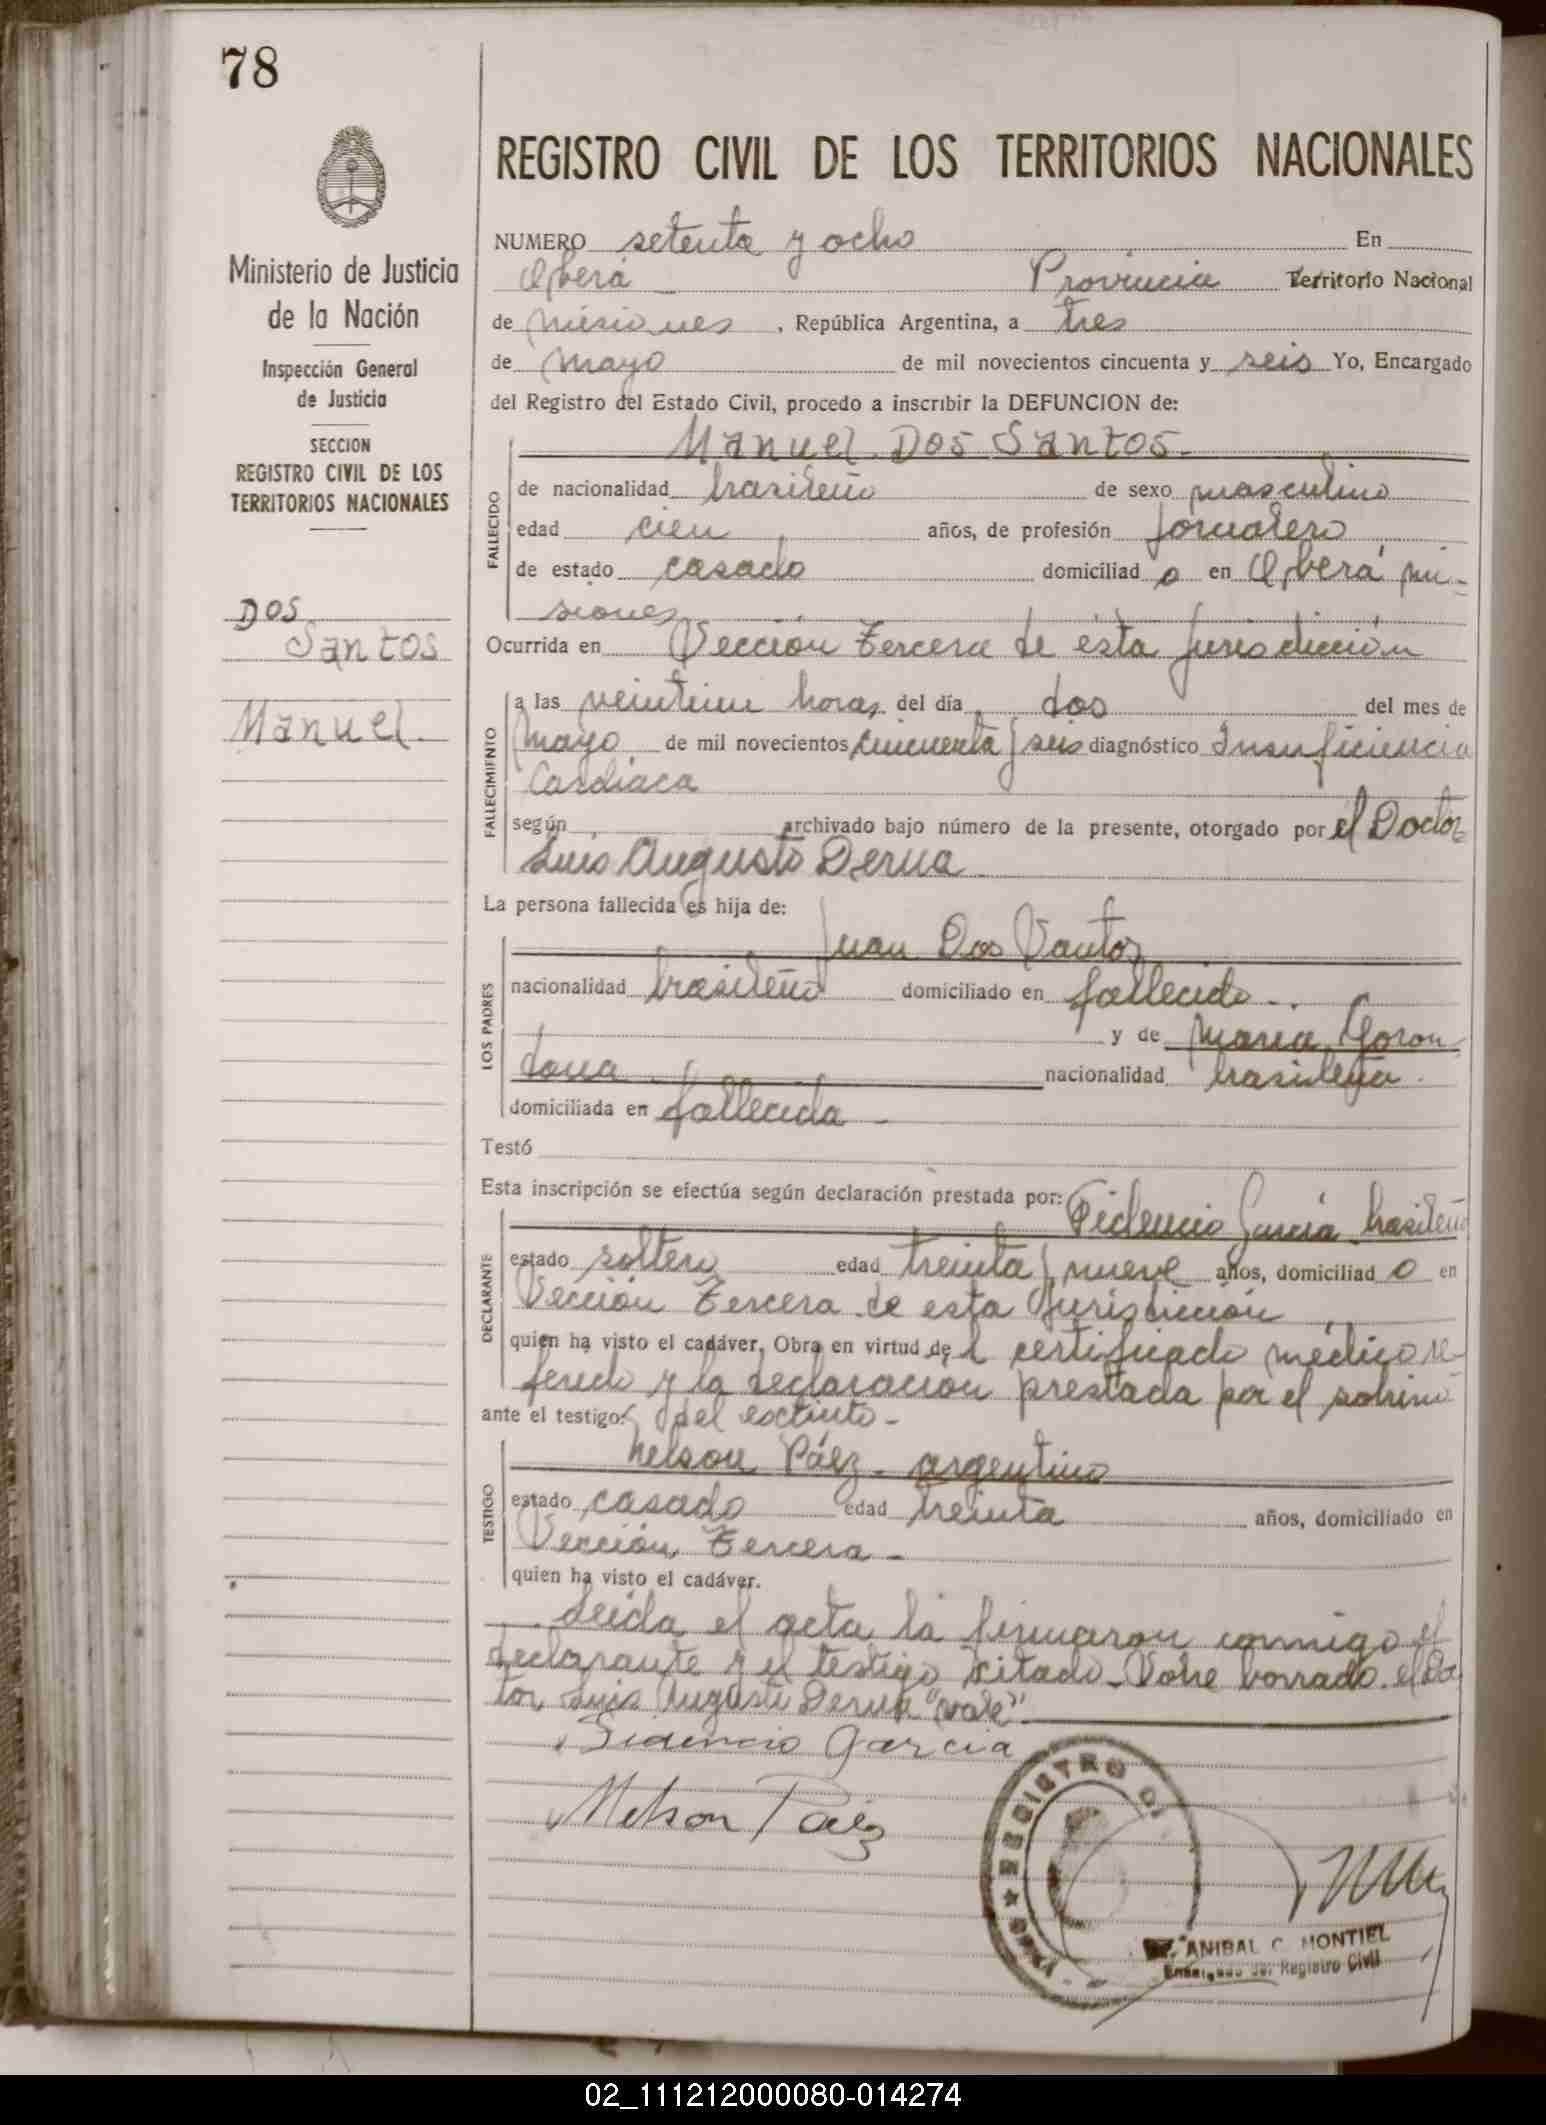 78
REGISTRO CIVIL DE LOS TERRITORIOS NACIONALES
Ministerio de Justicia
de la Nación
Inspección General
de Justicia
SECCION
REGISTRO CIVIL DE LOS
TERRITORIOS NACIONALES
DOS
Santos
Manuel.
NUMERO setenta y ocho En
Oberá Provincia Territorio Nacional
de misiones, República Argentina, a tres
de mayo de mil novecientos cincuenta y seis Yo, Encargado
del Registro del Estado Civil, procedo a inscribir la DEFUNCION de:
Manuel Dos Santos.
FALLECIDO
de nacionalidad brasileño de sexo masculino
edad cien años, de profesión jornalero
de estado casado domiciliad o en Oberá mi-
siones
Ocurrida en Sección Tercera de esta jurisdicción
FALLECIMIENTO
a las veintiun horas del día dos del mes de
mayo de mil novecientos cincuenta y seis diagnóstico Insuficiencia
Cardíaca
según archivado bajo número de la presente, otorgado por el Doctor
Luis Augusto Derna
La persona fallecida es hija de:
LOS PADRES
Juan Dos Santos
nacionalidad brasileño domiciliado en fallecido -.
y de maria Goron
dona nacionalidad brasileña.
domiciliada en fallecida -
Testó
Esta inscripción se efectúa según declaración prestada por: Fidencio García brasileño
DECLARANTE
estado soltero edad treinta y nueve años, domiciliad o en
Sección Tercera de esta Jurisdicción
quien ha visto el cadáver. Obra en virtud de l certificado médico re-
ferido y la declaracion prestada por el sobrino
ante el testigo: del extinto -
TESTIGO
Nelson Páez - argentino
estado casado edad treinta años, domiciliado en
Sección Tercera -
quien ha visto el cadáver.
Leída el acta la firmaron conmigo el
declarante y el testigo citado - Sobre borrado. el Doc
tor Luis Augusto Derna "vale"
Fidencio Garcia
Nelson Páez
REGISTRO C.
ANIBAL C. MONTIEL
Encargado del Registro Civil
02_111212000080-014274